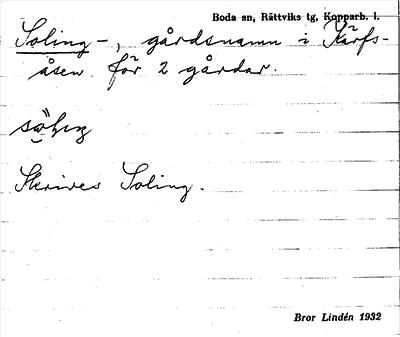 Boda sn, Rättviks tg, Kopparb. l.
Soling-, gårdsnamn i Kärfs-
åsen för 2 gårdar.
Skrives Soling.
Bror Lindén 1932